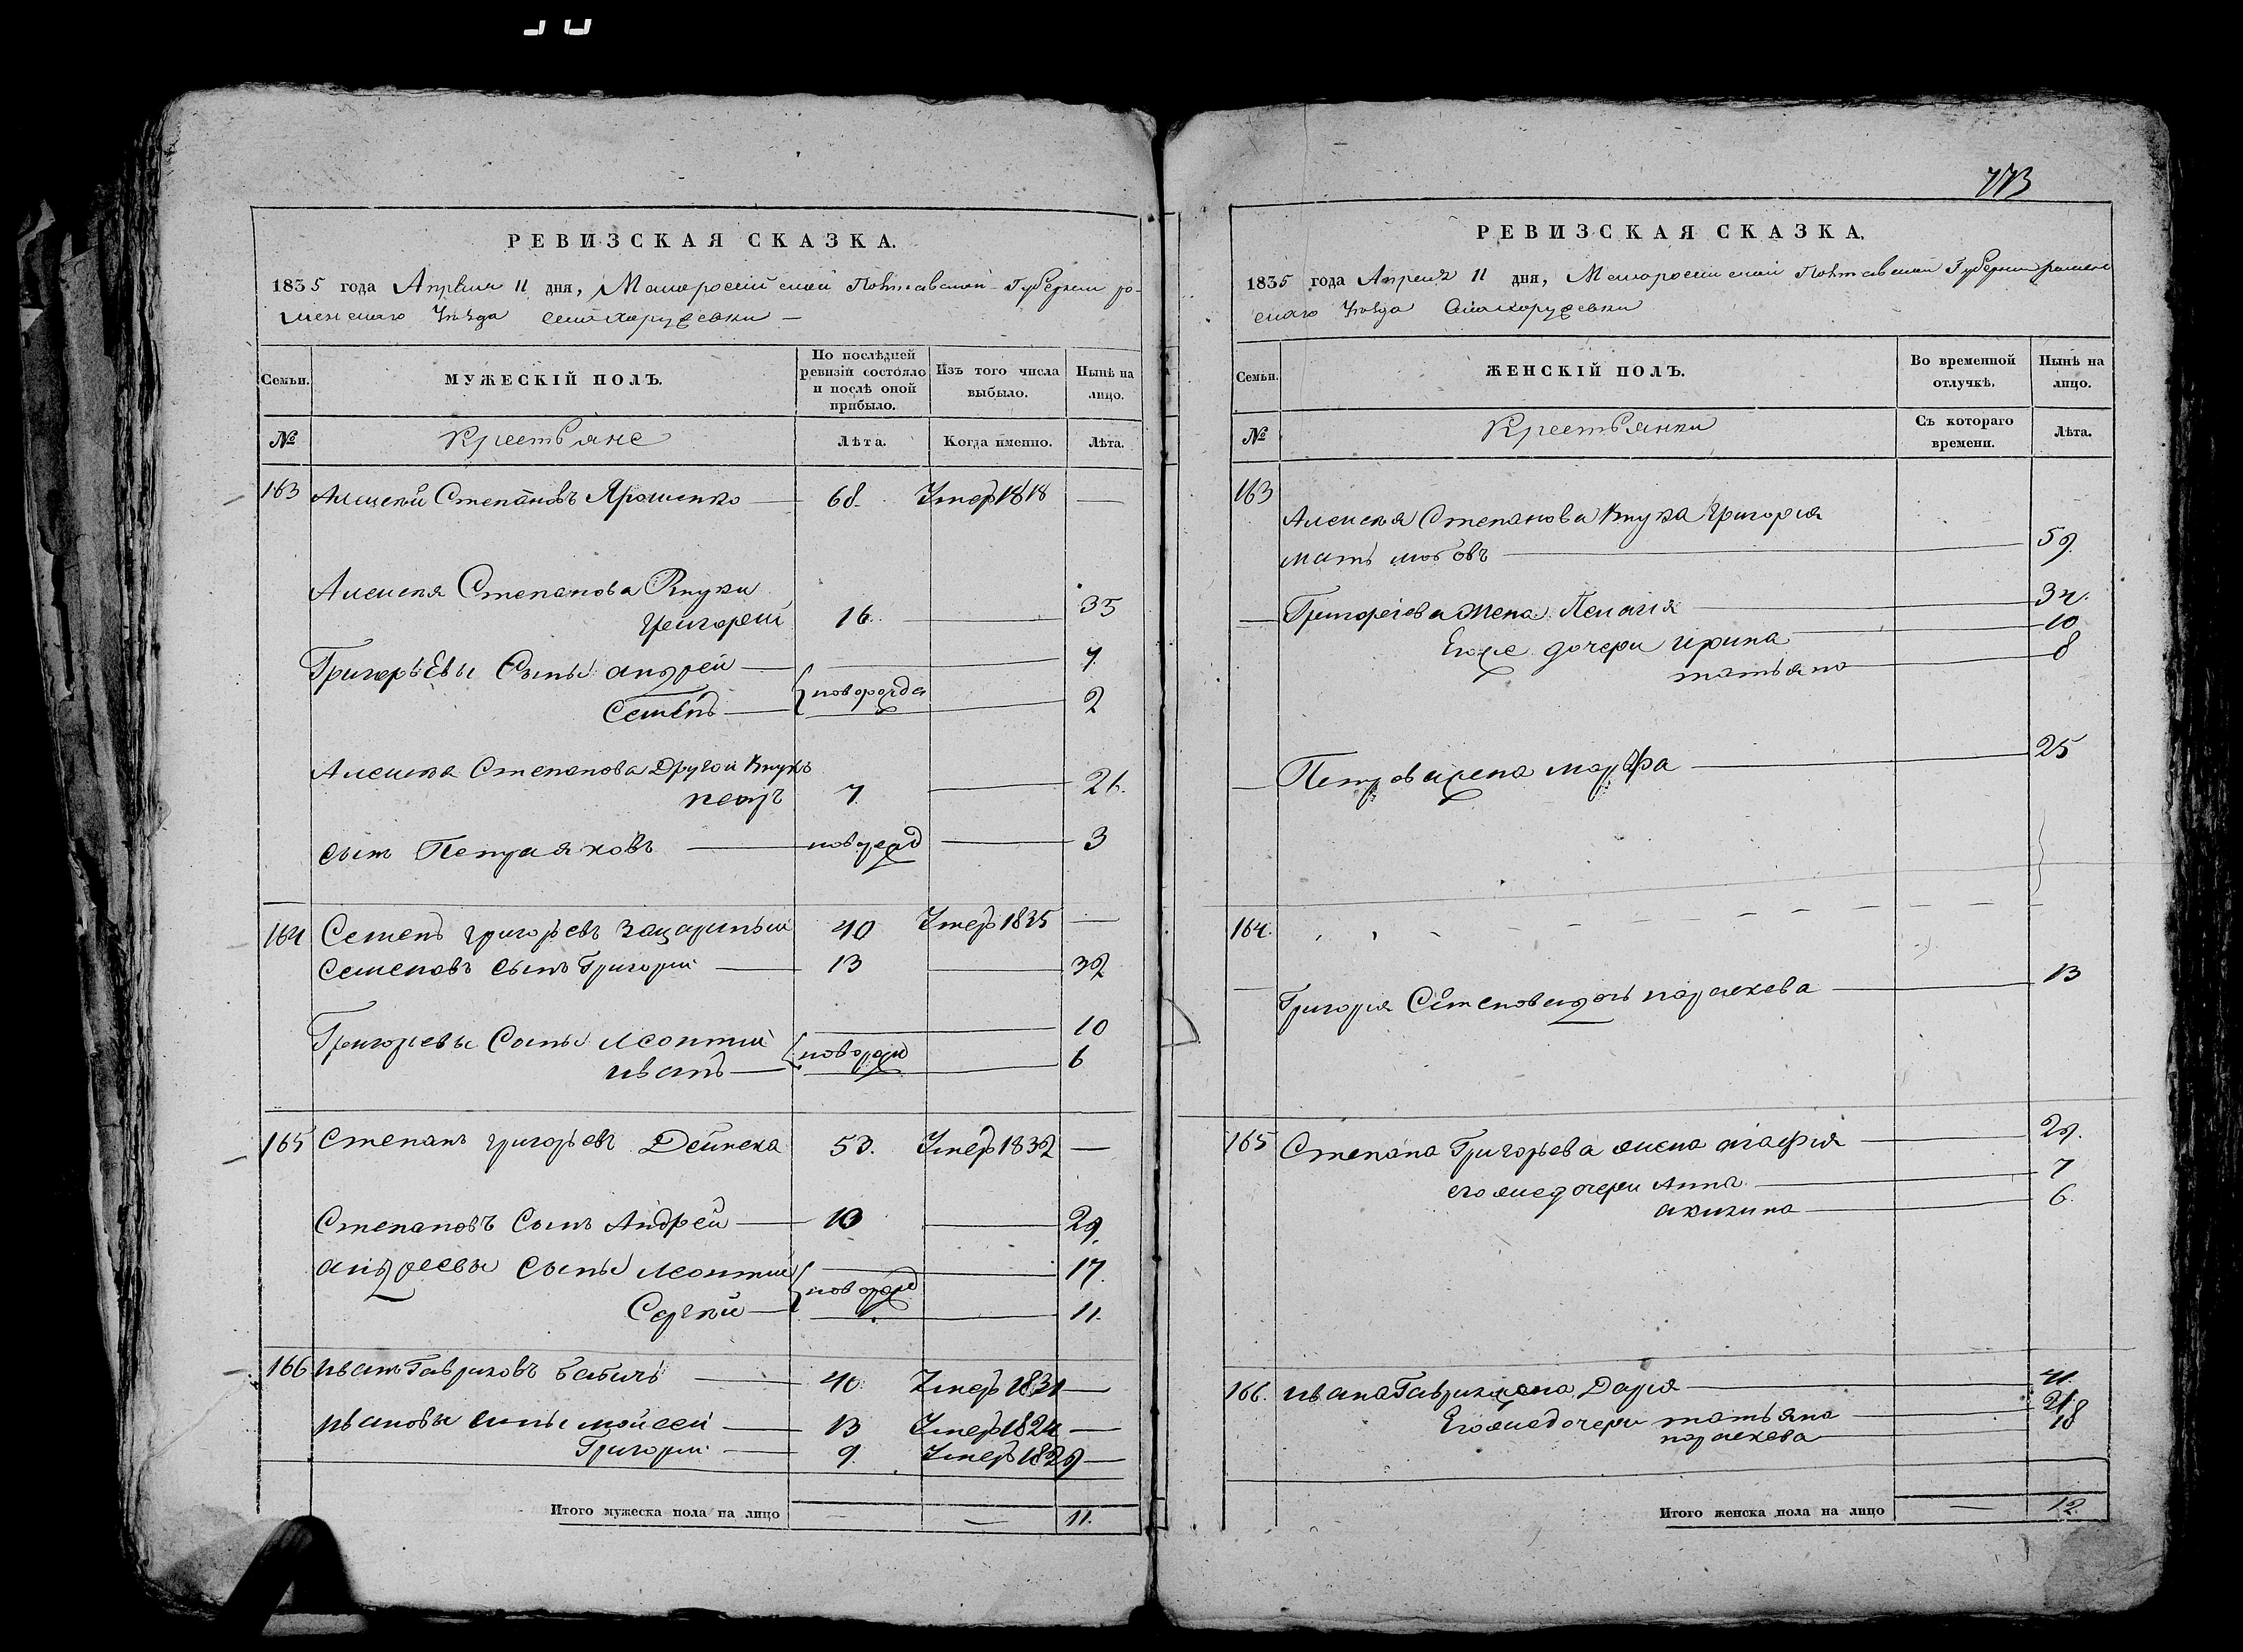 773
РЕВИЗСКАЯ СКАЗКА.
1835 года Апреля 11 дня, Малоросійской Полтавской Губерніи ро-
менскаго Уезда села хоружевки
Семьи.
МУЖЕСКІЙ ПОЛЪ.
По послѣдней ревизіи состояло и послѣ оной прибыло.
Изъ того числа выбыло.
Нынѣ на лицо.
№
Крестьяне
Лѣта.
Когда именно.
Лѣта.
163 Алексей Степановъ Ярошенко — 68. Умер 1818 —
Алексея Степанова Внуки
Григорей 16. — 35
Григорьевы Сыны андрей — 7
{новорожда
Семенъ — 2
Алексея Степанова Другой Внукъ
петръ 7 — 21.
сынъ Петра яковъ — новорожд — 3
164 Семенъ григорьевъ 40 Умер 1835 —
Семеновъ сынъ Григорий — 13 — 32
Григорьевы Сыны леонтий — 10
{новорожд
иванъ — 6
165 Степанъ григорьевъ Дейнека 53. Умер 1832 —
Степановъ Сынъ Андрей — 10 — 29.
андреевы сыны леонтий — 17.
{новорожд
Сергей — 11.
166 иванъ Гавриловъ бабичь — 40 Умер 1831 —
ивановы сыны мойсей — 13 Умер 1824 —
Григорий — 9. Умер 1829 —
Итого мужеска пола на лицо — — 11.
РЕВИЗСКАЯ СКАЗКА.
1835 года Апреля 11 дня, Малоросийской Полтавской Губернии ромен
скаго Уезда села хоружевки
Семьи.
ЖЕНСКІЙ ПОЛЪ.
Во временной отлучкѣ.
Нынѣ на лицо.
№
Крестьянки
Съ котораго времени.
Лѣта.
163
Алексея Степанова Внука Григория
мать любовъ — 59.
Григоріева Жена Пелагія — 34.
Егоже дочери ирина — 10
татьяна — 8
Петрова жена марфа — 25
164.
Григория Семенова дочь параскева — 13
165 Степана Григорьева жена агафия — 29.
его же дочери Анна — 7
акилина — 6.
166. ивана Гаврилова жена Дария — 41.
Его же дочери татьяна — 21
параскева — 18
Итого женска пола на лицо — 12.